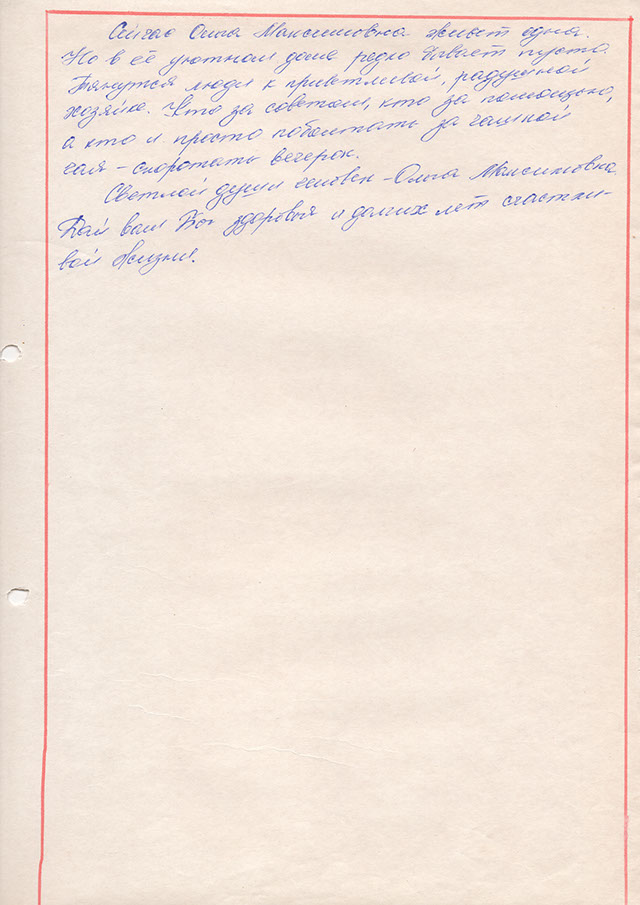 Сейчас Ольга Максимовна живёт одна.
Но в её уютном доме редко бывает пусто.
Тянутся люди к приветливой, радушной
хозяйке. Кто за советом, кто за помощью,
а кто и просто поболтать за чашкой
чая – скоротать вечерок.
Светлой души человек – Ольга Максимовна.
Дай вам Бог здоровья и долгих лет счастли-
вой жизни.